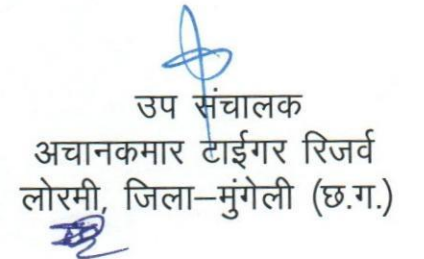 उप संचालक
अचानकमार टाईगर रिजर्व
लोरमी, जिला–मुंगेली (छ.ग.)